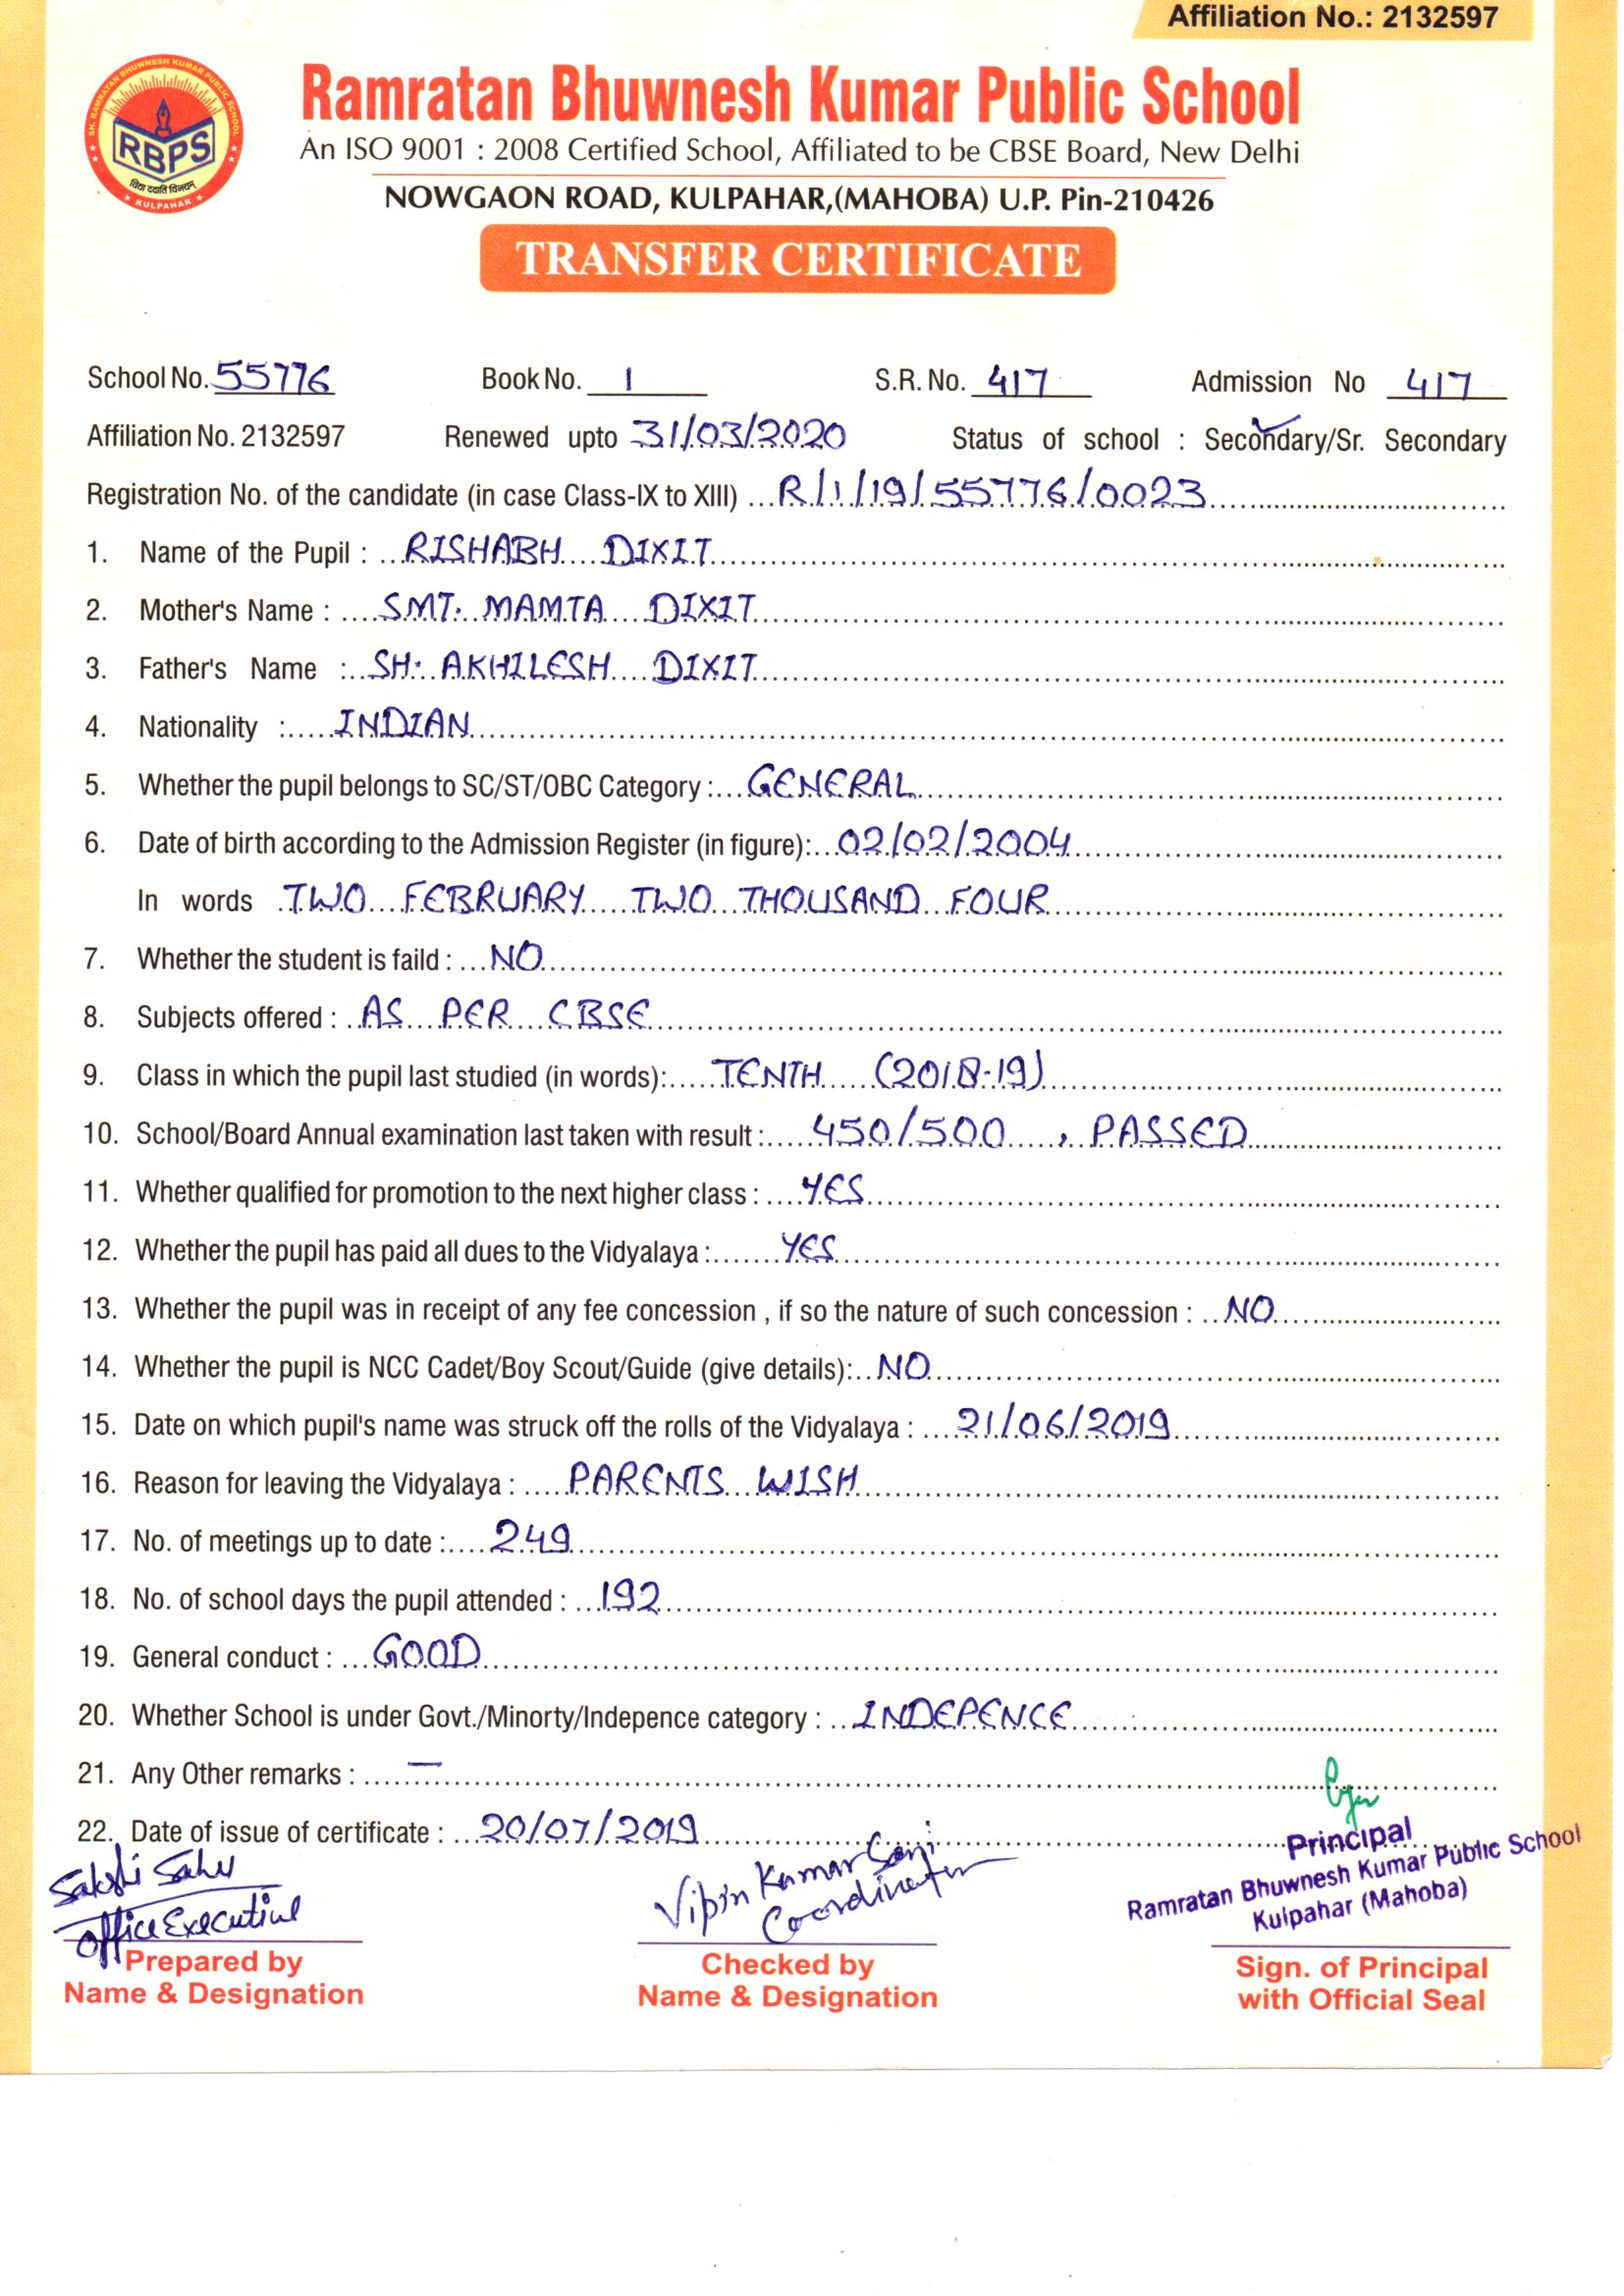 Affiliation No.: 2132597
SH. RAMRATAN BHUWNESH KUMAR PUBLIC SCHOOL
RBPS
विद्या ददाति विनयम्
KULPAHAR
Ramratan Bhuwnesh Kumar Public School
An ISO 9001 : 2008 Certified School, Affiliated to be CBSE Board, New Delhi
NOWGAON ROAD, KULPAHAR,(MAHOBA) U.P. Pin-210426
TRANSFER CERTIFICATE
School No. 55776 Book No. 1 S.R. No. 417 Admission No 417
Affiliation No. 2132597 Renewed upto 31/03/2020 Status of school : Secondary/Sr. Secondary
Registration No. of the candidate (in case Class-IX to XIII) ...R/1/19/55776/0023
1. Name of the Pupil : RISHABH DIXIT
2. Mother's Name : SMT. MAMTA DIXIT
3. Father's Name : SH. AKHILESH DIXIT
4. Nationality : INDIAN
5. Whether the pupil belongs to SC/ST/OBC Category : GENERAL
6. Date of birth according to the Admission Register (in figure): 02/02/2004
In words TWO FEBRUARY TWO THOUSAND FOUR
7. Whether the student is faild : NO
8. Subjects offered : AS PER CBSE
9. Class in which the pupil last studied (in words): TENTH (2018-19)
10. School/Board Annual examination last taken with result : 450/500 , PASSED
11. Whether qualified for promotion to the next higher class : YES
12. Whether the pupil has paid all dues to the Vidyalaya : YES
13. Whether the pupil was in receipt of any fee concession , if so the nature of such concession : NO
14. Whether the pupil is NCC Cadet/Boy Scout/Guide (give details): NO
15. Date on which pupil's name was struck off the rolls of the Vidyalaya : 21/06/2019
16. Reason for leaving the Vidyalaya : PARENTS WISH
17. No. of meetings up to date : 249
18. No. of school days the pupil attended : 192
19. General conduct : GOOD
20. Whether School is under Govt./Minorty/Indepence category : INDEPENCE
21. Any Other remarks : —
22. Date of issue of certificate : 20/07/2019
Sakshi Sahu
Office Executive
Prepared by
Name & Designation
Vipin Kumar Soni
Coordinator
Checked by
Name & Designation
Principal
Ramratan Bhuwnesh Kumar Public School
Kulpahar (Mahoba)
Sign. of Principal
with Official Seal